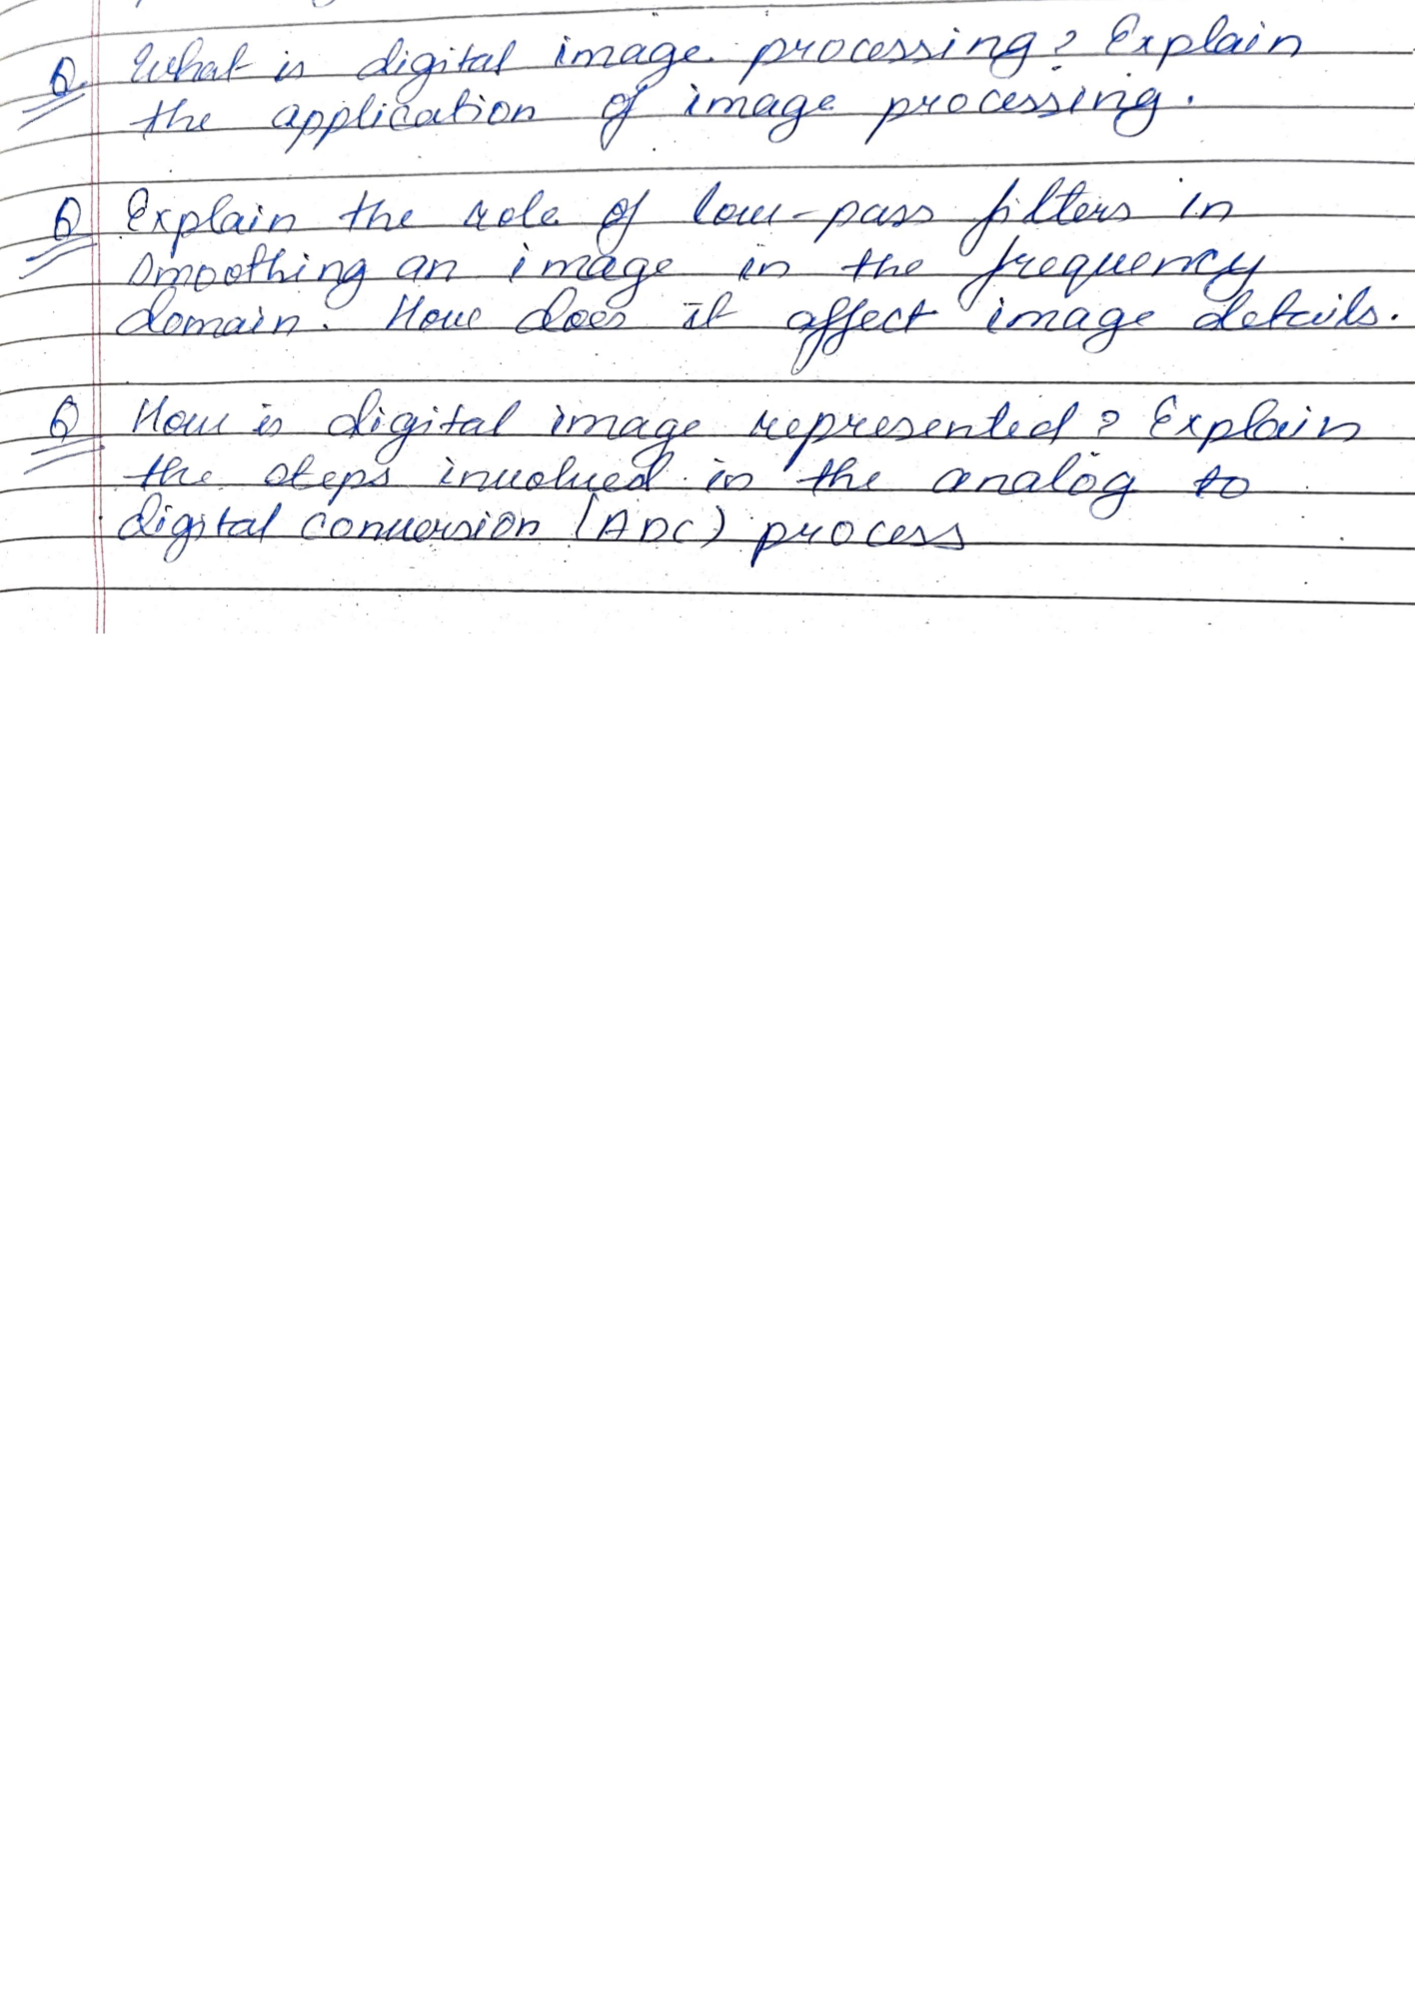 Q What is digital image processing? Explain
the application of image processing.
Q Explain the role of low-pass filters in
smoothing an image in the frequency
domain. How does it affect image details.
Q How is digital image represented? Explain
the steps involved in the analog to
digital conversion (ADC) process